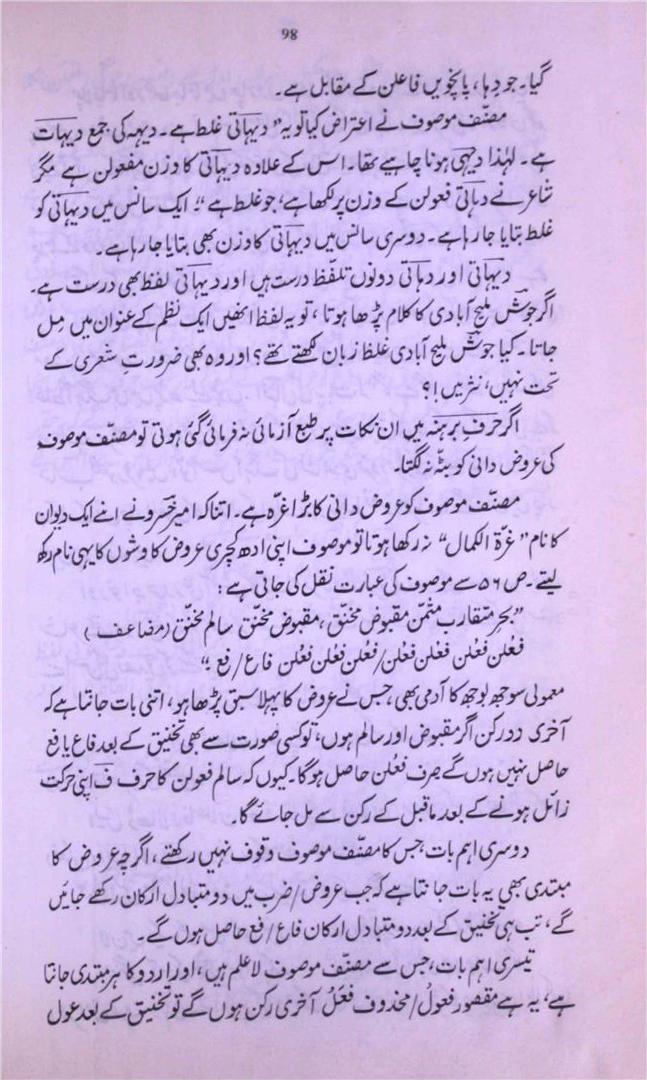 98
گیا۔ جو دِہا، پانچویں فاعلن کے مقابل ہے۔
مصنّف موصوف نے اعتراض کیا تو یہ ”دیہاتی غلط ہے۔ دیہہ کی جمع دیہات
ہے۔ لہٰذا دیہی ہونا چاہیے تھا۔ اس کے علاوہ دیہاتی کا وزن مفعولن ہے مگر
شاعر نے دہاتی فعولن کے وزن پر لکھا ہے، جو غلط ہے“۔ ایک سانس میں دیہاتی کو
غلط بتایا جا رہا ہے۔ دوسری سانس میں دیہاتی کا وزن بھی بتایا جا رہا ہے۔
دیہاتی اور دہاتی دونوں تلفّظ درست ہیں اور دیہاتی لفظ بھی درست ہے۔
اگر جوش ملیح آبادی کا کلام پڑھا ہوتا، تو یہ لفظ انھیں ایک نظم کے عنوان میں مِل
جاتا۔ کیا جوش ملیح آبادی غلط زبان لکھتے تھے؟ اور وہ بھی ضرورت شعری کے
تحت نہیں، نثر میں!؟
اگر حَرفِ برہنہ میں ان نکات پر طبع آزمائی نہ فرمائی گئی ہوتی تو مصنّف موصوف
کی عروض دانی کو بٹّہ نہ لگتا۔
مصنّف موصوف کو عروض دانی کا بڑا غرّہ ہے۔ اتنا کہ امیر خسرو نے اپنے ایک دیوان
کا نام ”غرّۃ الکمال“ نہ رکھا ہوتا تو موصوف اپنی ادھ کچری عروض کاوشوں کا یہی نام رکھ
لیتے۔ ص ۵۶ سے موصوف کی عبارت نقل کی جاتی ہے :
”بحرِ متقارب مثمّن مقبوض مخنّق، مقبوض مخنّق سالم مخنّق (مضاعف)
فَعْلن فَعْلن فَعْلن فَعْلن/فَعْلن فَعْلن فَعْلن فاع/ فع ؛“
معمولی سوجھ بوجھ کا آدمی بھی، جس نے عروض کا پہلا سبق پڑھا ہو، اتنی بات جانتا ہے کہ
آخری دو رکن اگر مقبوض اور سالم ہوں، تو کسی صورت سے بھی تخنیق کے بعد فاع یا فع
حاصل نہیں ہوں گے صرف فَعْلن حاصل ہوگا۔ کیوں کہ سالم فعولن کا حرف فَ اپنی حرکت
زائل ہونے کے بعد ماقبل کے رکن سے مل جائے گا۔
دوسری اہم بات، جس کا مصنّف موصوف وقوف نہیں رکھتے، اگرچہ عروض کا
مبتدی بھی یہ بات جانتا ہے کہ جب عروض/ضرب میں دو متبادل ارکان رکھے جائیں
گے، تب ہی تخنیق کے بعد دو متبادل ارکان فاع/فع حاصل ہوں گے۔
تیسری اہم بات، جس سے مصنّف موصوف لاعلم ہیں، اور اردو کا ہر مبتدی جانتا
ہے، یہ ہے مقصور فعولُ/محذوف فَعَلُ آخری رکن ہوں گے تو تخنیق کے بعد عول